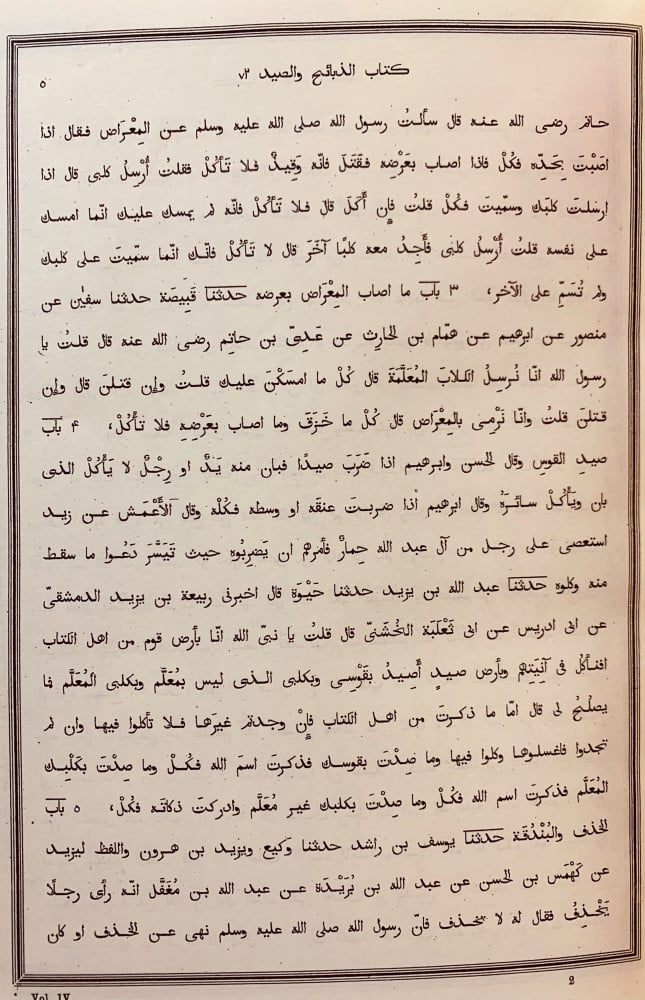 كتاب الذبائح والصيد ٧٢
٥
حاتم رضى الله عنه قال سألتُ رسول الله صلى الله عليه وسلم عن المِعْراض فقال اذا
اصَبْتَ بِحَدّه فكُلْ فاذا اصاب بعَرْضِه فقَتَلَ فانّه وَقِيذٌ فلا تَأْكُلْ فقلتُ أُرْسِلُ كلبى قال اذا
ارسَلتَ كلبَك وسمّيتَ فكُلْ قلتُ فإن أَكَلَ قال فلا تَأْكُلْ فانّه لم يمسك عليك انّما امسك
على نفسه قلتُ أُرْسِلُ كلبى فأَجِدُ معه كلبًا آخَرَ قال لا تَأْكُلْ فانّك انّما سمّيتَ على كلبك
ولم تُسَمِّ على الآخر، ٣ باب ما اصاب المِعْراض بعرضه حدثنا قَبِيصَة حدثنا سفيٰن عن
منصور عن ابرهيم عن همّام بن الحارِث عن عَدِىّ بن حاتِم رضى الله عنه قال قلتُ يا
رسول الله انّا نُرسِلُ الكلابَ المُعَلَّمَةَ قال كُلْ ما امسَكْنَ عليك قلتُ وإن قتلنَ قال وإن
قتلنَ قلتُ وانّا نَرْمِى بالمِعْراض قال كُلْ ما خَزَقَ وما اصاب بعَرْضِهِ فلا تأكُلْ، ۴ باب
صيدِ القوسِ وقال الحسن وابرهيم اذا ضَرَبَ صيدًا فبان منه يَدٌ او رِجْلٌ لا يَأْكُلُ الذى
بان ويَأْكُلُ سائرَهُ وقال ابرهيم اذا ضربتَ عنقَه او وسطه فكُلْه وقال الأَعْمَش عن زيد
استعصى على رجل من آل عبد الله حِمارٌ فأمرهم ان يَضرِبُوه حيث تَيَسَّرَ دَعُوا ما سقط
منه وكلوه حدثنا عبد الله بن يزيد حدثنا حَيْوَة قال اخبرنى ربيعة بن يزيد الدمشقىّ
عن ابى ادريس عن ابى ثَعْلَبَة الخُشَنىّ قال قلتُ يا نبىّ الله انّا بأرض قوم من اهل الكتاب
افنأكُل فى آنِيَتِهِم وبأرض صيدٍ أَصِيدُ بقَوْسِى وبكلبى الذى ليس بمُعلَّم وبكلبى المُعَلَّم فما
يصلُحُ لى قال امّا ما ذكرتَ من اهل الكتاب فإنْ وجدتم غيرَها فلا تأكلوا فيها وان لم
تجدوا فاغسلوها وكلوا فيها وما صِدْتَ بقوسك فذكرتَ اسمَ الله فكُلْ وما صِدْتَ بكَلْبِك
المُعَلَّم فذكرتَ اسم الله فكُلْ وما صِدْتَ بكلبك غير مُعَلَّم وادركتَ ذكاتَه فكُلْ، ٥ باب
الخذف والبُنْدُقَة حدثنا يوسف بن راشد حدثنا وَكيع ويزيد بن هرون واللفظ ليزيد
عن كَهْمَس بن الحسن عن عبد الله بن بُرَيْدَة عن عبد الله بن مُغَفَّل انّه رأى رجلًا
يَخْذِفُ فقال له لا تخذف فانّ رسول الله صلى الله عليه وسلم نهى عن الخذف او كان
2
Vol. IV